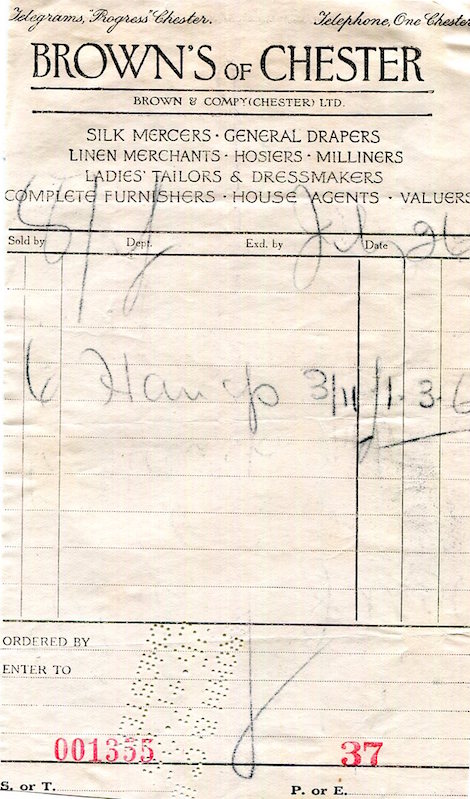 Telegrams, "Progress" Chester. Telephone, One Chester
BROWN'S OF CHESTER
BROWN & COMPY (CHESTER) LTD.
SILK MERCERS · GENERAL DRAPERS
LINEN MERCHANTS · HOSIERS · MILLINERS
LADIES' TAILORS & DRESSMAKERS
COMPLETE FURNISHERS · HOUSE AGENTS · VALUERS
Sold by Dept. Exd. by Date 26
6 3/11 1. 3. 6
ORDERED BY
ENTER TO
001355 37
S. or T. P. or E.